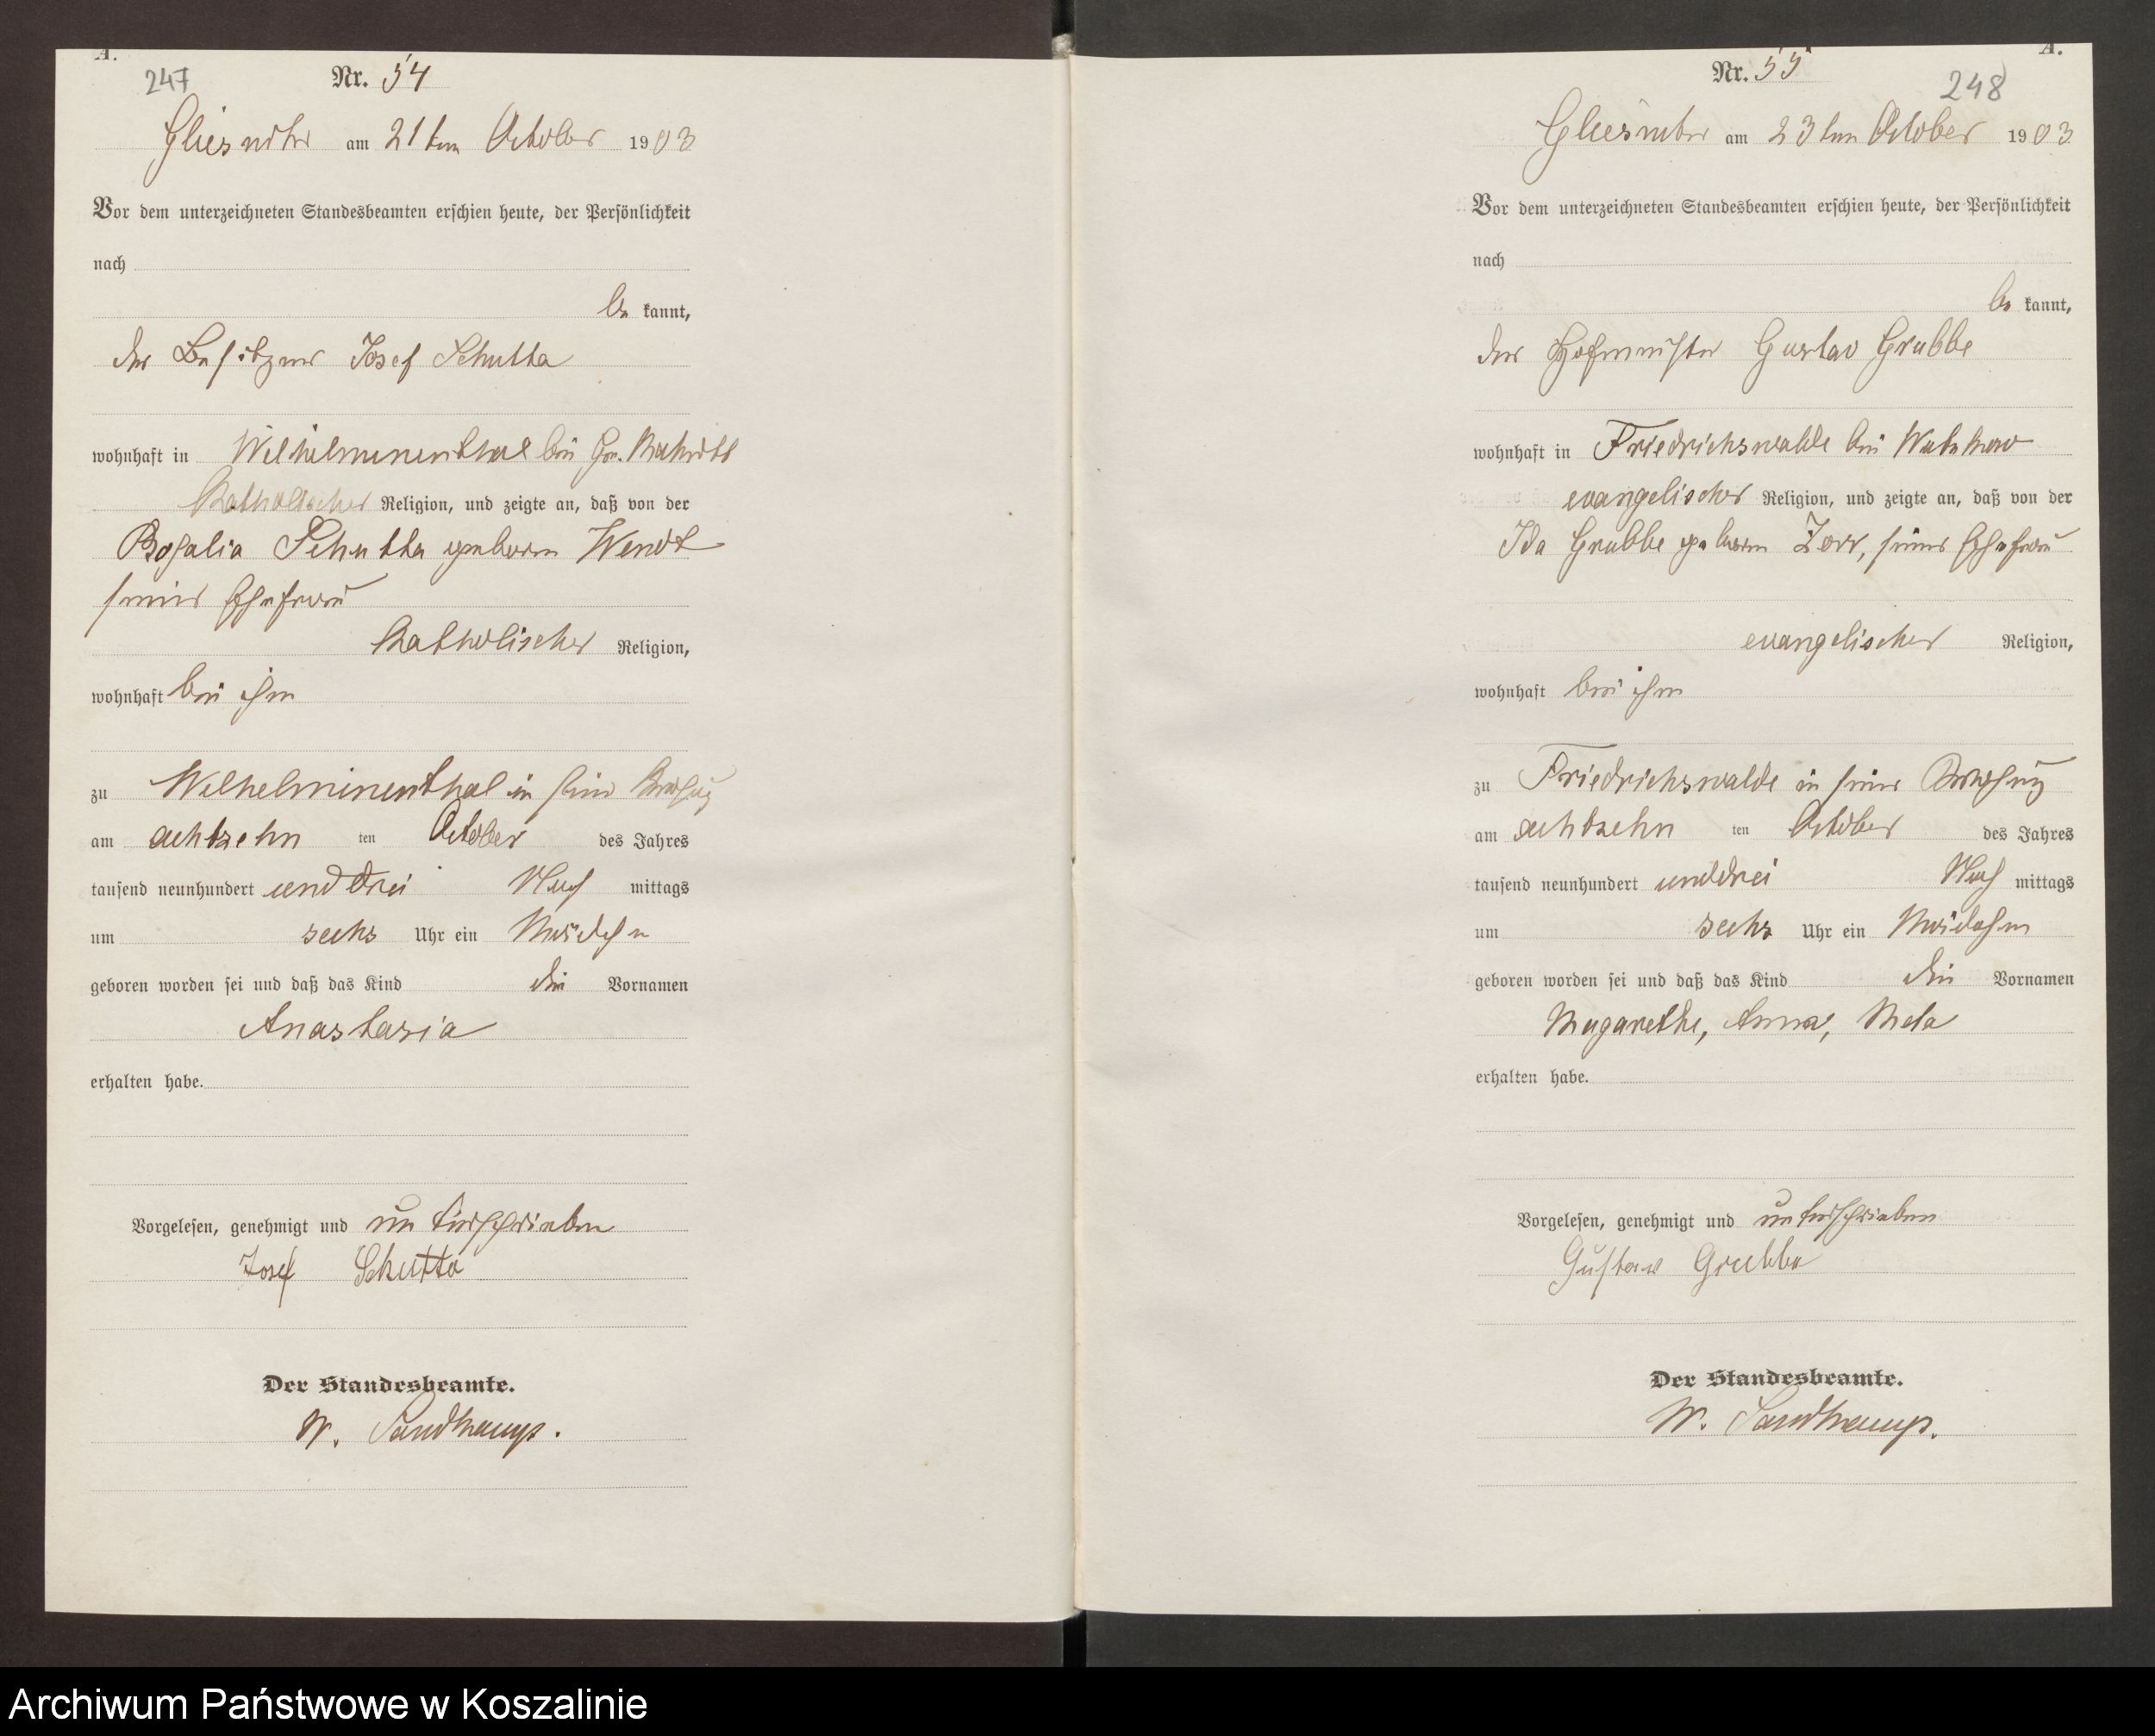 A.
247
Nr. 54
Gliesnitz am 21ten October 1903
Vor dem unterzeichneten Standesbeamten erschien heute, der Persönlichkeit
nach
be kannt,
der Besitzer Josef Schutta
wohnhaft in Wilhelminenthal bei Gr.
Katholischer Religion, und zeigte an, daß von der
Rosalia Schutta geboren Wendt
seiner Ehefrau
Katholischer Religion,
wohnhaft bei ihm
zu Wilhelminenthal in seiner Behausung
am achtzehn ten October des Jahres
tausend neunhundert und drei Nach mittags
um sechs Uhr ein Mädchen
geboren worden sei und daß das Kind die Vornamen
Anastasia
erhalten habe.
Vorgelesen, genehmigt und unterschrieben
Josef Schutta
Der Standesbeamte.
W. Sandkamp.
A.
Nr. 55
248
Gliesnitz am 23ten October 1903
Vor dem unterzeichneten Standesbeamten erschien heute, der Persönlichkeit
nach
be kannt,
der Hofmeister Gustav Grubbe
wohnhaft in Friedrichswalde bei
evangelischer Religion, und zeigte an, daß von der
Ida Grubbe geboren Zorr, seiner Ehefrau
evangelischer Religion,
wohnhaft bei ihm
zu Friedrichswalde in seiner Behausung
am achtzehn ten October des Jahres
tausend neunhundert und drei Nach mittags
um sechs Uhr ein Mädchen
geboren worden sei und daß das Kind die Vornamen
Magarethe, Anna, Meta
erhalten habe.
Vorgelesen, genehmigt und unterschrieben
Gustav Grubbe
Der Standesbeamte.
W. Sandkamp.
Archiwum Państwowe w Koszalinie